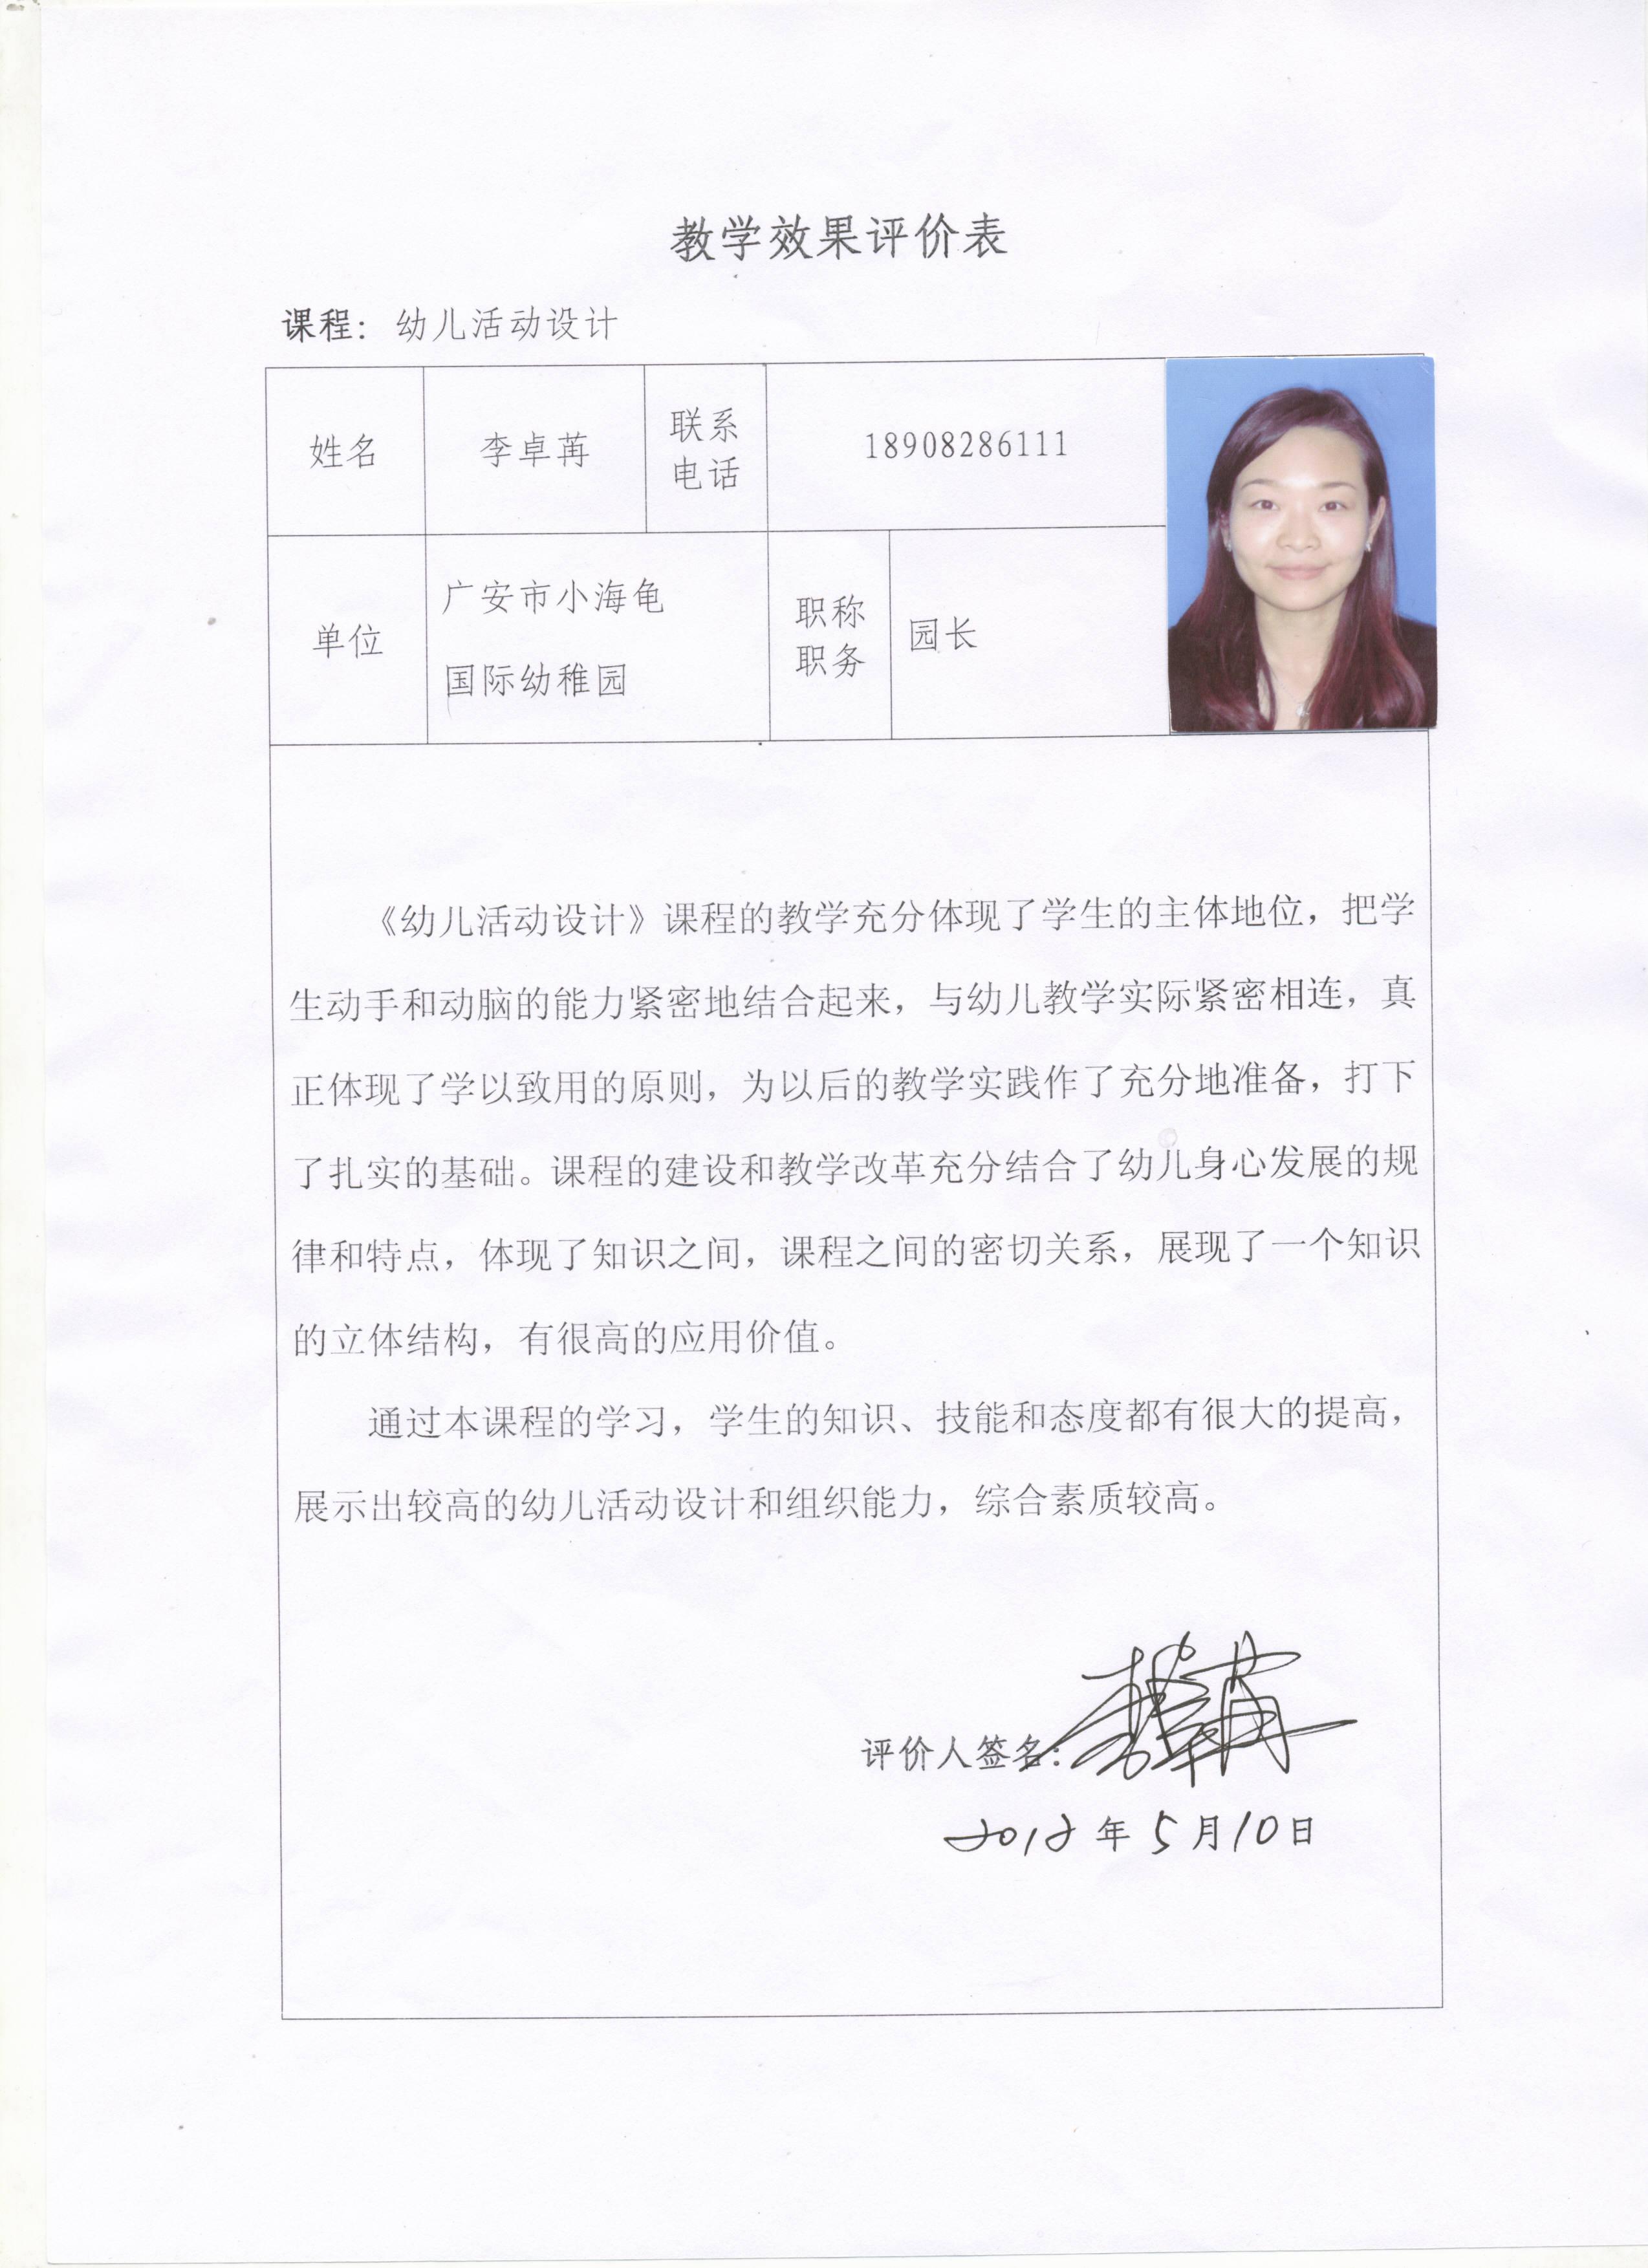 教学效果评价表
课程：幼儿活动设计
姓名 李卓苒 联系电话 18908286111
单位 广安市小海龟
国际幼稚园 职称职务 园长
《幼儿活动设计》课程的教学充分体现了学生的主体地位，把学
生动手和动脑的能力紧密地结合起来，与幼儿教学实际紧密相连，真
正体现了学以致用的原则，为以后的教学实践作了充分地准备，打下
了扎实的基础。课程的建设和教学改革充分结合了幼儿身心发展的规
律和特点，体现了知识之间，课程之间的密切关系，展现了一个知识
的立体结构，有很高的应用价值。
通过本课程的学习，学生的知识、技能和态度都有很大的提高，
展示出较高的幼儿活动设计和组织能力，综合素质较高。
评价人签名：李卓苒
2012年5月10日